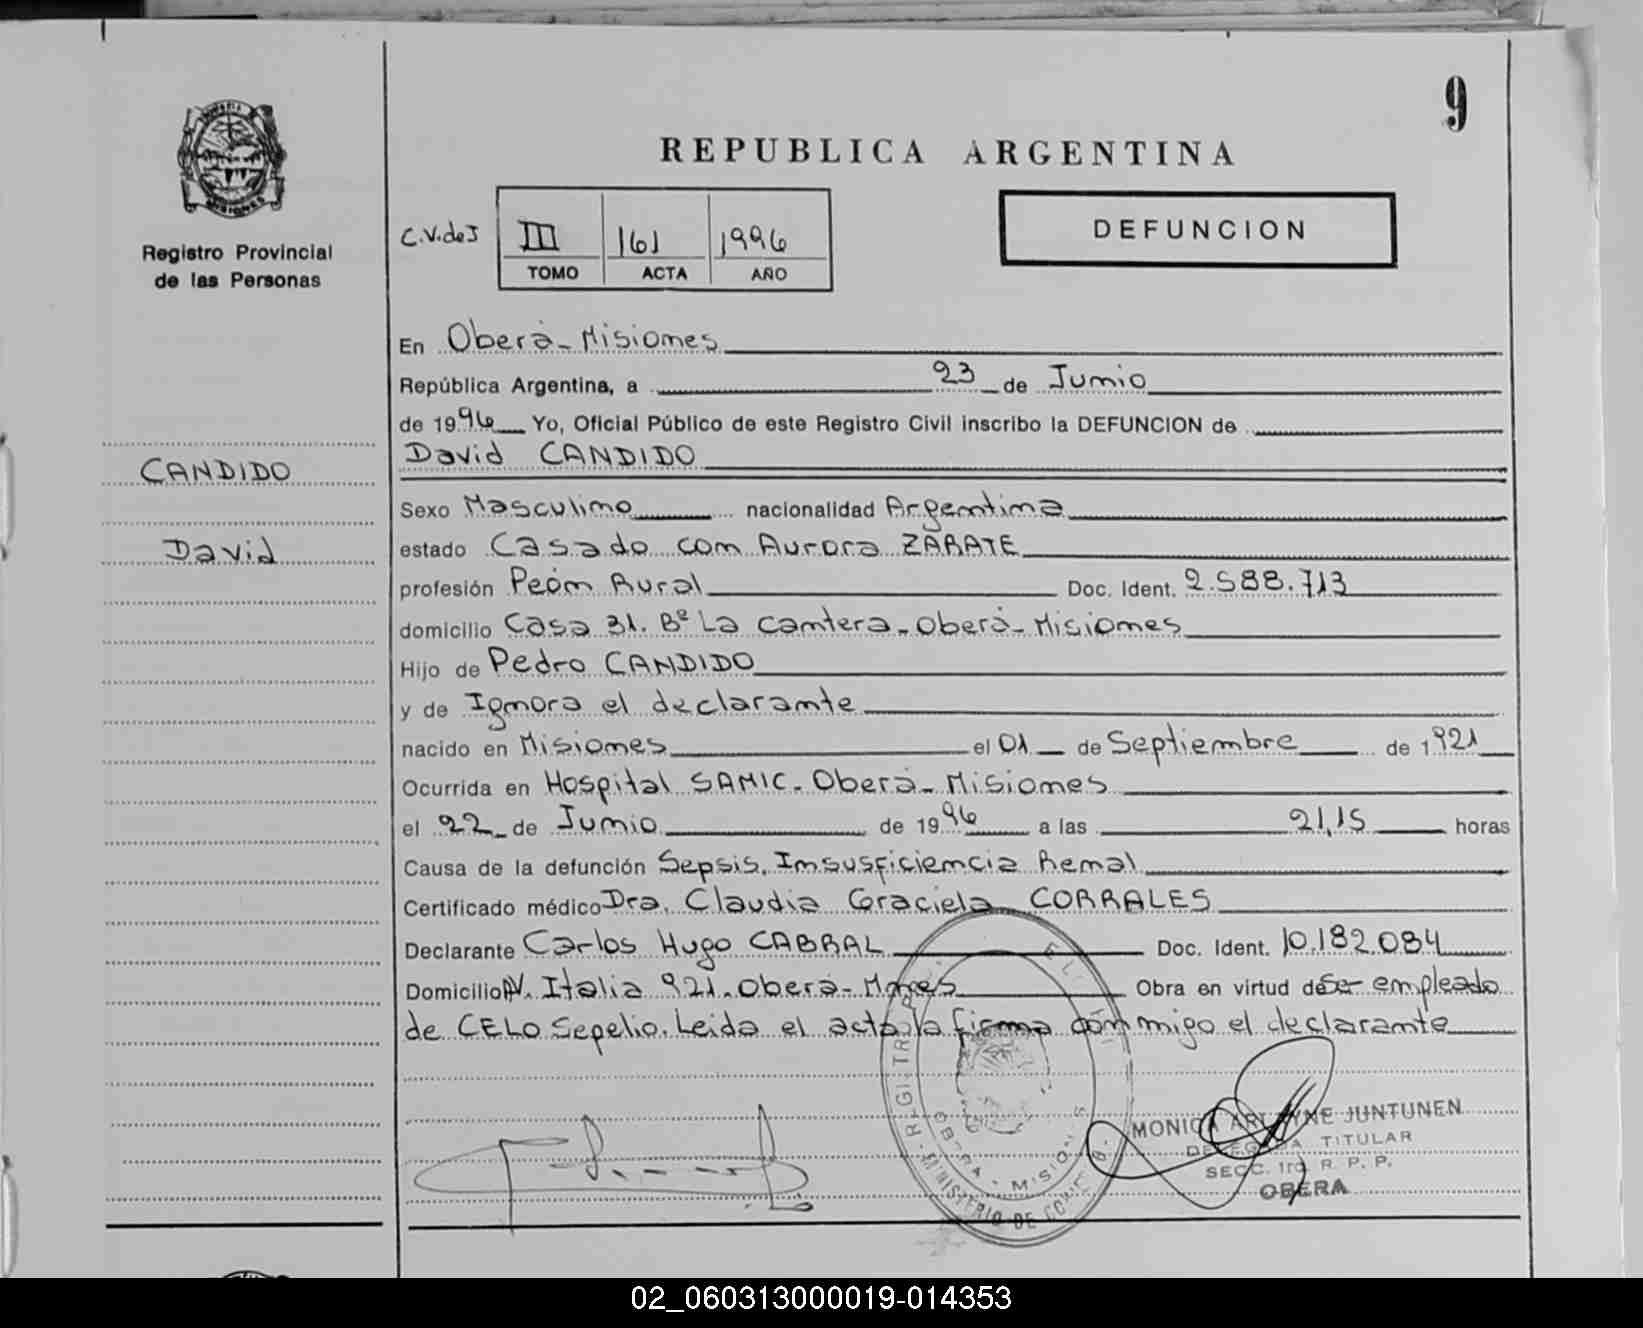 9
REPUBLICA ARGENTINA
Registro Provincial
de las Personas
C.V.deJ
III 161 1996
TOMO ACTA AÑO
DEFUNCION
En Oberá-Misiones
República Argentina, a 23 de Junio
de 1996 Yo, Oficial Público de este Registro Civil inscribo la DEFUNCION de
CANDIDO
David
David CANDIDO
Sexo Masculino nacionalidad Argentina
estado Casado con Aurora ZARATE
profesión Peón Rural Doc. Ident. 2.588.713
domicilio Casa 31. Bº La cantera-Oberá-Misiones
Hijo de Pedro CANDIDO
y de Ignora el declarante
nacido en Misiones el 01 de Septiembre de 1921
Ocurrida en Hospital SAMIC-Oberá-Misiones
el 22 de Junio de 1996 a las 21,15 horas
Causa de la defunción Sepsis, Insuficiencia Renal
Certificado médico Dra. Claudia Graciela CORRALES
Declarante Carlos Hugo CABRAL Doc. Ident. 10.182.084
Domicilio AV. Italia 921-Oberá-Mnes Obra en virtud de Ser empleado
de CELO Sepelio. Leida el acta la firma conmigo el declarante
MINISTERIO DE
OBERA - MISIONES
MONICA ARLYNE JUNTUNEN
DELEGADA TITULAR
SECC. 1ra R. P. P.
OBERA
02_060313000019-014353